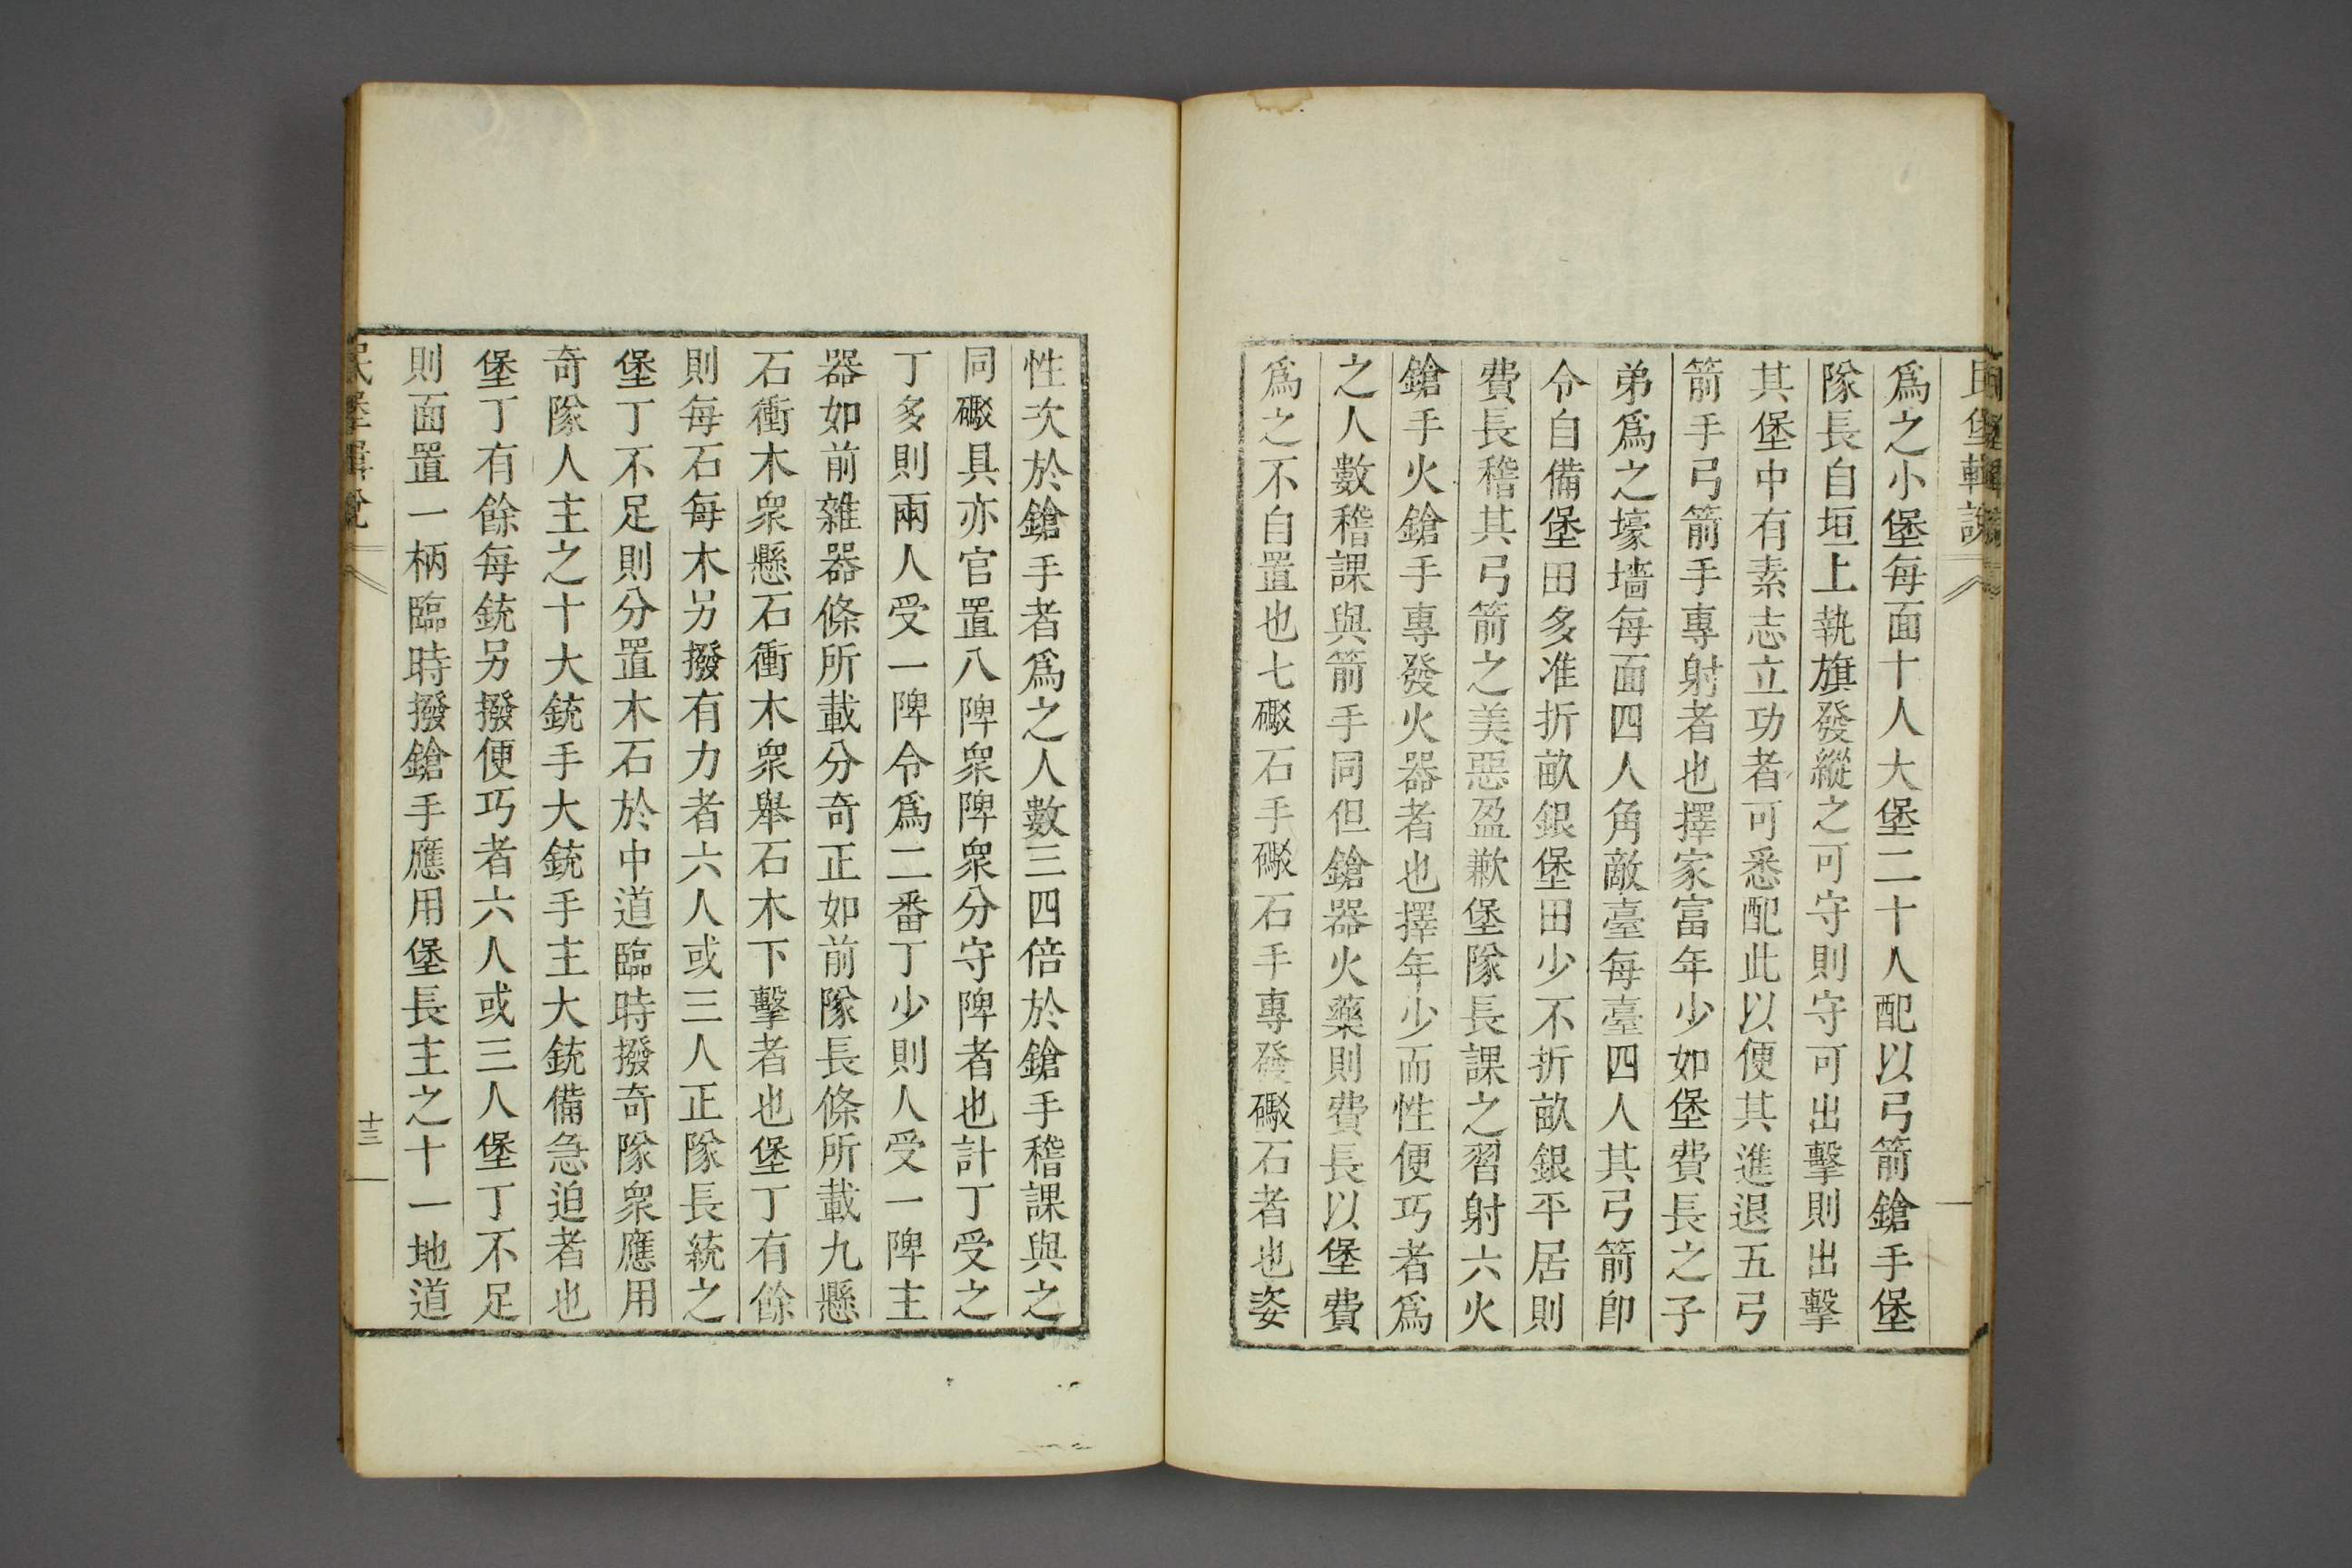 民堡輯說
爲之小堡每面十人大堡二十人配以弓箭鎗手堡
隊長自垣上執旗發縱之可守則守可出擊則出擊
其堡中有素志立功者可悉配此以便其進退五弓
箭手弓箭手專射者也擇家富年少如堡費長之子
弟爲之壕墻每面四人角敵臺每臺四人其弓箭卽
令自備堡田多准折畝銀堡田少不折畝銀平居則
費長稽其弓箭之美惡盈歉堡隊長課之習射六火
鎗手火鎗手專發火器者也擇年少而性便巧者爲
之人數稽課與箭手同但鎗器火藥則費長以堡費
爲之不自置也七礮石手礮石手專發礮石者也姿
性次於鎗手者爲之人數三四倍於鎗手稽課與之
同礮具亦官置八陴衆陴衆分守陴者也計丁受之
丁多則兩人受一陴令爲二番丁少則人受一陴主
器如前雜器條所載分奇正如前隊長條所載九懸
石衝木衆懸石衝木衆舉石木下擊者也堡丁有餘
則每石每木另撥有力者六人或三人正隊長統之
堡丁不足則分置木石於中道臨時撥奇隊衆應用
奇隊人主之十大銃手大銃手主大銃備急迫者也
堡丁有餘每銃另撥便巧者六人或三人堡丁不足
則面置一柄臨時撥鎗手應用堡長主之十一地道
民堡輯說
十三